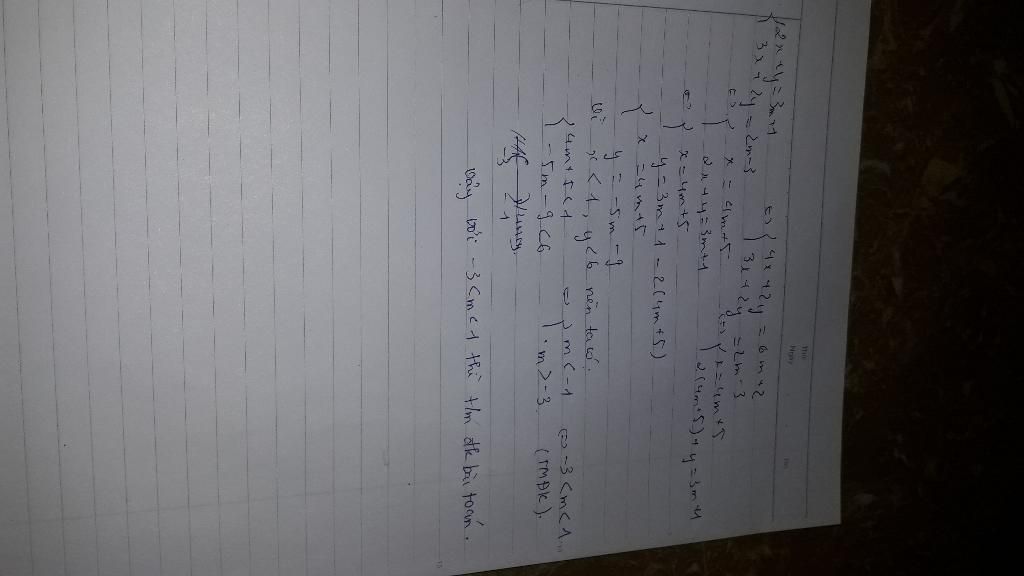 Thứ
Ngày
No.
{ 2x + y = 3m+1 ⇔ { 4x + 2y = 6m + 2
3x + 2y = 2m - 3 3x + 2y = 2m - 3
⇔ { x = 4m+5 ⇔ { x = 4m+5
2x + y = 3m+1 2(4m+5) + y = 3m+1
⇔ { x = 4m+5
y = 3m + 1 - 2(4m+5)
{ x = 4m+5
y = -5m - 9
Vì x < 1, y < 6 nên ta có:
{ 4m + 5 < 1 ⇔ { m < -1 ⇔ -3 < m < 1
-5m - 9 < 6 m > -3 (TMĐK).
Vậy với -3 < m < 1 thì t/m đk bài toán.